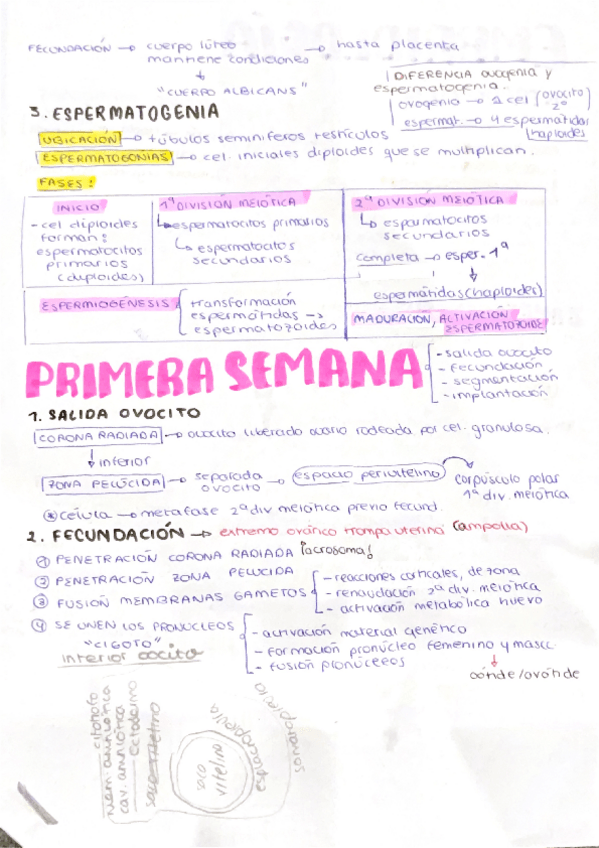 FECUNDACIÓN → cuerpo lúteo → hasta placenta
mantiene condiciones
↓
"CUERPO ALBICANS"
DIFERENCIA ovogenia y
espermatogenia.
ovogenia → 1 cel (ovocito
2º
espermat. → 4 espermátidas
haploides
3. ESPERMATOGENIA
UBICACIÓN → túbulos seminíferos testículos
ESPERMATOGONIAS → cel. iniciales diploides que se multiplican.
FASES:
INICIO
- cel diploides
forman:
espermatocitos
primarios
(diploides)
1ª DIVISIÓN MEIÓTICA
↳ espermatocitos primarios
↳ espermatocitos
secundarios
2ª DIVISIÓN MEIÓTICA
↳ espermatocitos
secundarios
completa → esper. 1ª
↓
espermátidas (haploides)
ESPERMIOGÉNESIS
transformación
espermátidas →
espermatozoides
MADURACIÓN, ACTIVACIÓN
ESPERMATOZOIDE
PRIMERA SEMANA
- salida ovocito
- fecundación
- segmentación
- implantación
1. SALIDA OVOCITO
CORONA RADIADA → ovocito liberado ovario rodeada por cel. granulosa.
↓ inferior
ZONA PELÚCIDA → separada ovocito → espacio perivitelino
corpúsculo polar
1ª div. meiótica
* célula → metafase 2ª div meiótica previo fecund.
2. FECUNDACIÓN → extremo ovárico trompa uterina (ampolla)
① PENETRACIÓN CORONA RADIADA ¡acrosoma!
② PENETRACIÓN ZONA PELUCIDA
③ FUSIÓN MEMBRANAS GAMETOS
- reacciones corticales, de zona
- renaudación 2ª div. meiótica
- activación metabólica huevo
④ SE UNEN LOS PRONÚCLEOS
"CIGOTO"
interior oocito
- activación material genético
- formación pronúcleo femenino y masc.
- fusión pronúceos
↓
dónde/ovónde
citotrofo
mem. amniótica
cav. amniótica
ectodermo
saco vitelino
saco
vitelino